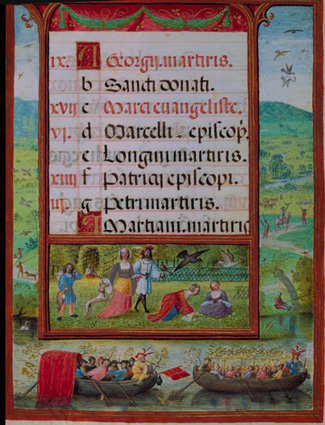 ix. A Georgii.martiris.
b Sancti donati.
xvij c Marci euangeliste.
vj. d Marcelli episcop.
e Longini.martiris.
xiiij f Patricij episcopi.
iij. g Petri martiris.
A Martiani.martiris